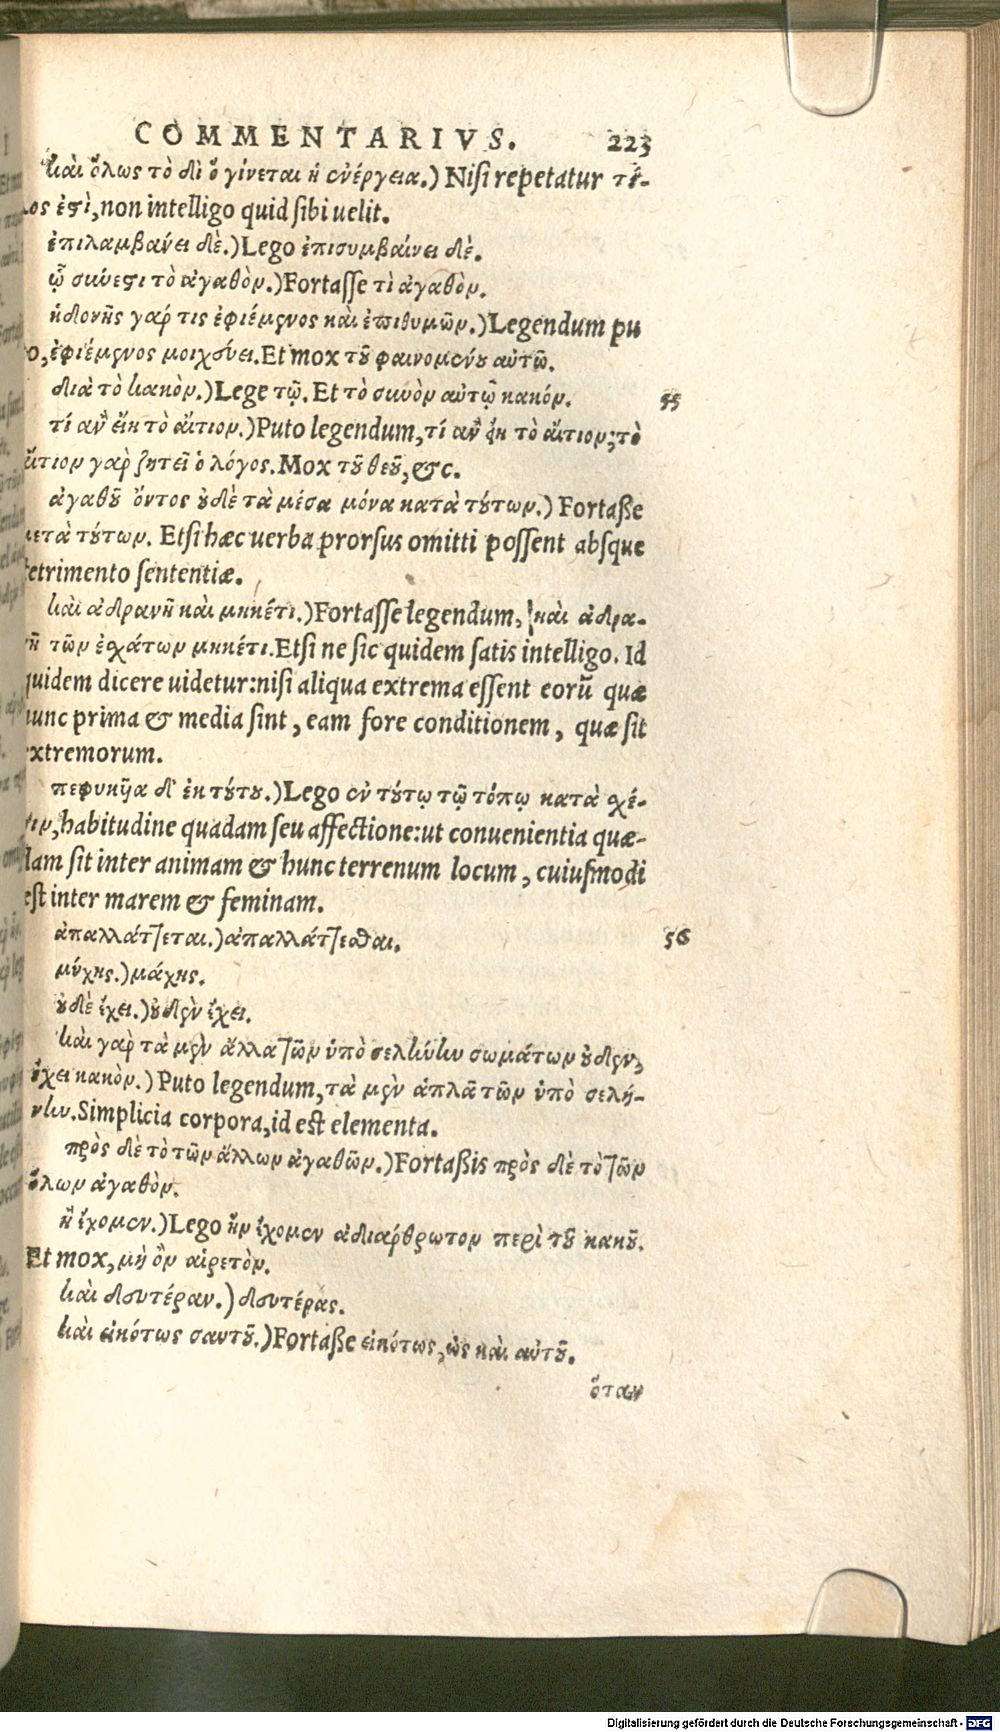 COMMENTARIVS. 223
καὶ ὅλως τὸ δι' ὃ γίνεται ἡ ἐνέργεια.) Nisi repetatur τέ-
λος ἐστὶ, non intelligo quid sibi uelit.
ἐπιλαμβάνει δὲ.) Lego ἐπισυμβαίνει δὲ.
ᾧ σύνεστι τὸ ἀγαθὸν.) Fortasse τὶ ἀγαθὸν.
ἡδονῆς γάρ τις ἐφιέμενος καὶ ἐπιθυμῶν.) Legendum pu
o, ἐφιέμενος μοιχεύει. Et mox τοῦ φαινομένου αὐτῶ.
διὰ τὸ κακὸν.) Lege τῷ. Et τὸ συνὸν αὐτῷ κακόν. 55
τί ἂν εἴη τὸ αἴτιον.) Puto legendum, τί ἂν ᾖη τὸ αἴτιον; τὸ
αἴτιον γὰρ ζητεῖ ὁ λόγος. Mox τοῦ θεοῦ, &c.
ἀγαθοῦ ὄντος οὐδὲ τὰ μέσα μόνα κατὰ τούτων.) Fortaße
μετὰ τούτων. Etsi hæc uerba prorsus omitti possent absque
etrimento sententiæ.
καὶ ἀδρανῆ καὶ μηκέτι.) Fortasse legendum, καὶ ἀδρα-
νῆ τῶν ἐσχάτων μηκέτι. Etsi ne sic quidem satis intelligo. Id
quidem dicere uidetur: nisi aliqua extrema essent eorū quæ
nunc prima & media sint, eam fore conditionem, quæ sit
extremorum.
πεφυκῆα δ' ἐκ τούτου.) Lego ἐν τούτῳ τῷ τόπῳ κατὰ σχέ-
σιν, habitudine quadam seu affectione: ut conuenientia quæ-
dam sit inter animam & hunc terrenum locum, cuiusmodi
est inter marem & feminam.
ἀπαλλάττεται.) ἀπαλλάττεσθαι. 56
μύχης.) μάχης.
οὐδὲ ἔχει.) οὐδὲν ἔχει.
καὶ γὰρ τὰ μὲν ἄλλα τῶν ὑπὸ σελήνην σωμάτων οὐδὲν,
ἔχει κακὸν.) Puto legendum, τὰ μὲν ἁπλᾶ τῶν ὑπὸ σελή-
νην. Simplicia corpora, id est elementa.
πρὸς δὲ τὸ τῶν ἄλλων ἀγαθῶν.) Fortaßis πρὸς δὲ τὸ τῶν
ὅλων ἀγαθὸν.
ἢ ἔχομεν.) Lego ἣν ἔχομεν ἀδιάρθρωτον περὶ τοῦ κακοῦ.
Et mox, μὴ ὂν αἱρετὸν.
καὶ δευτέραν.) δευτέρας.
καὶ εἰκότως σαυτοῦ.) Fortaße εἰκότως, ὡς καὶ αὐτοῦ.
ὅταν
Digitalisierung gefördert durch die Deutsche Forschungsgemeinschaft - DFG